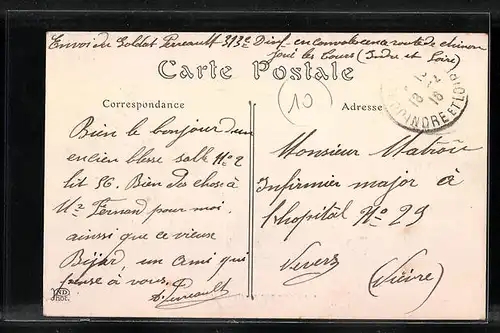 Envoi du Soldat Perreault 313e Dinf en convalescence route de chinon
Joué les Tours (Indre et Loire)
Carte Postale
Correspondance
Adresse
10
INDRE ET LOIRE
Bien le bonjour d'un
encien blesse salle No 2
lit 56. Bien des chose à
Mr Fernand pour moi
ainsi que ce vieux
Bijar un ami qui
pense à vous.
Perreault
ND
Phot.
Monsieur Matron
Infirmier major à
l'hopital No 29
Nevers
(Nièvre)